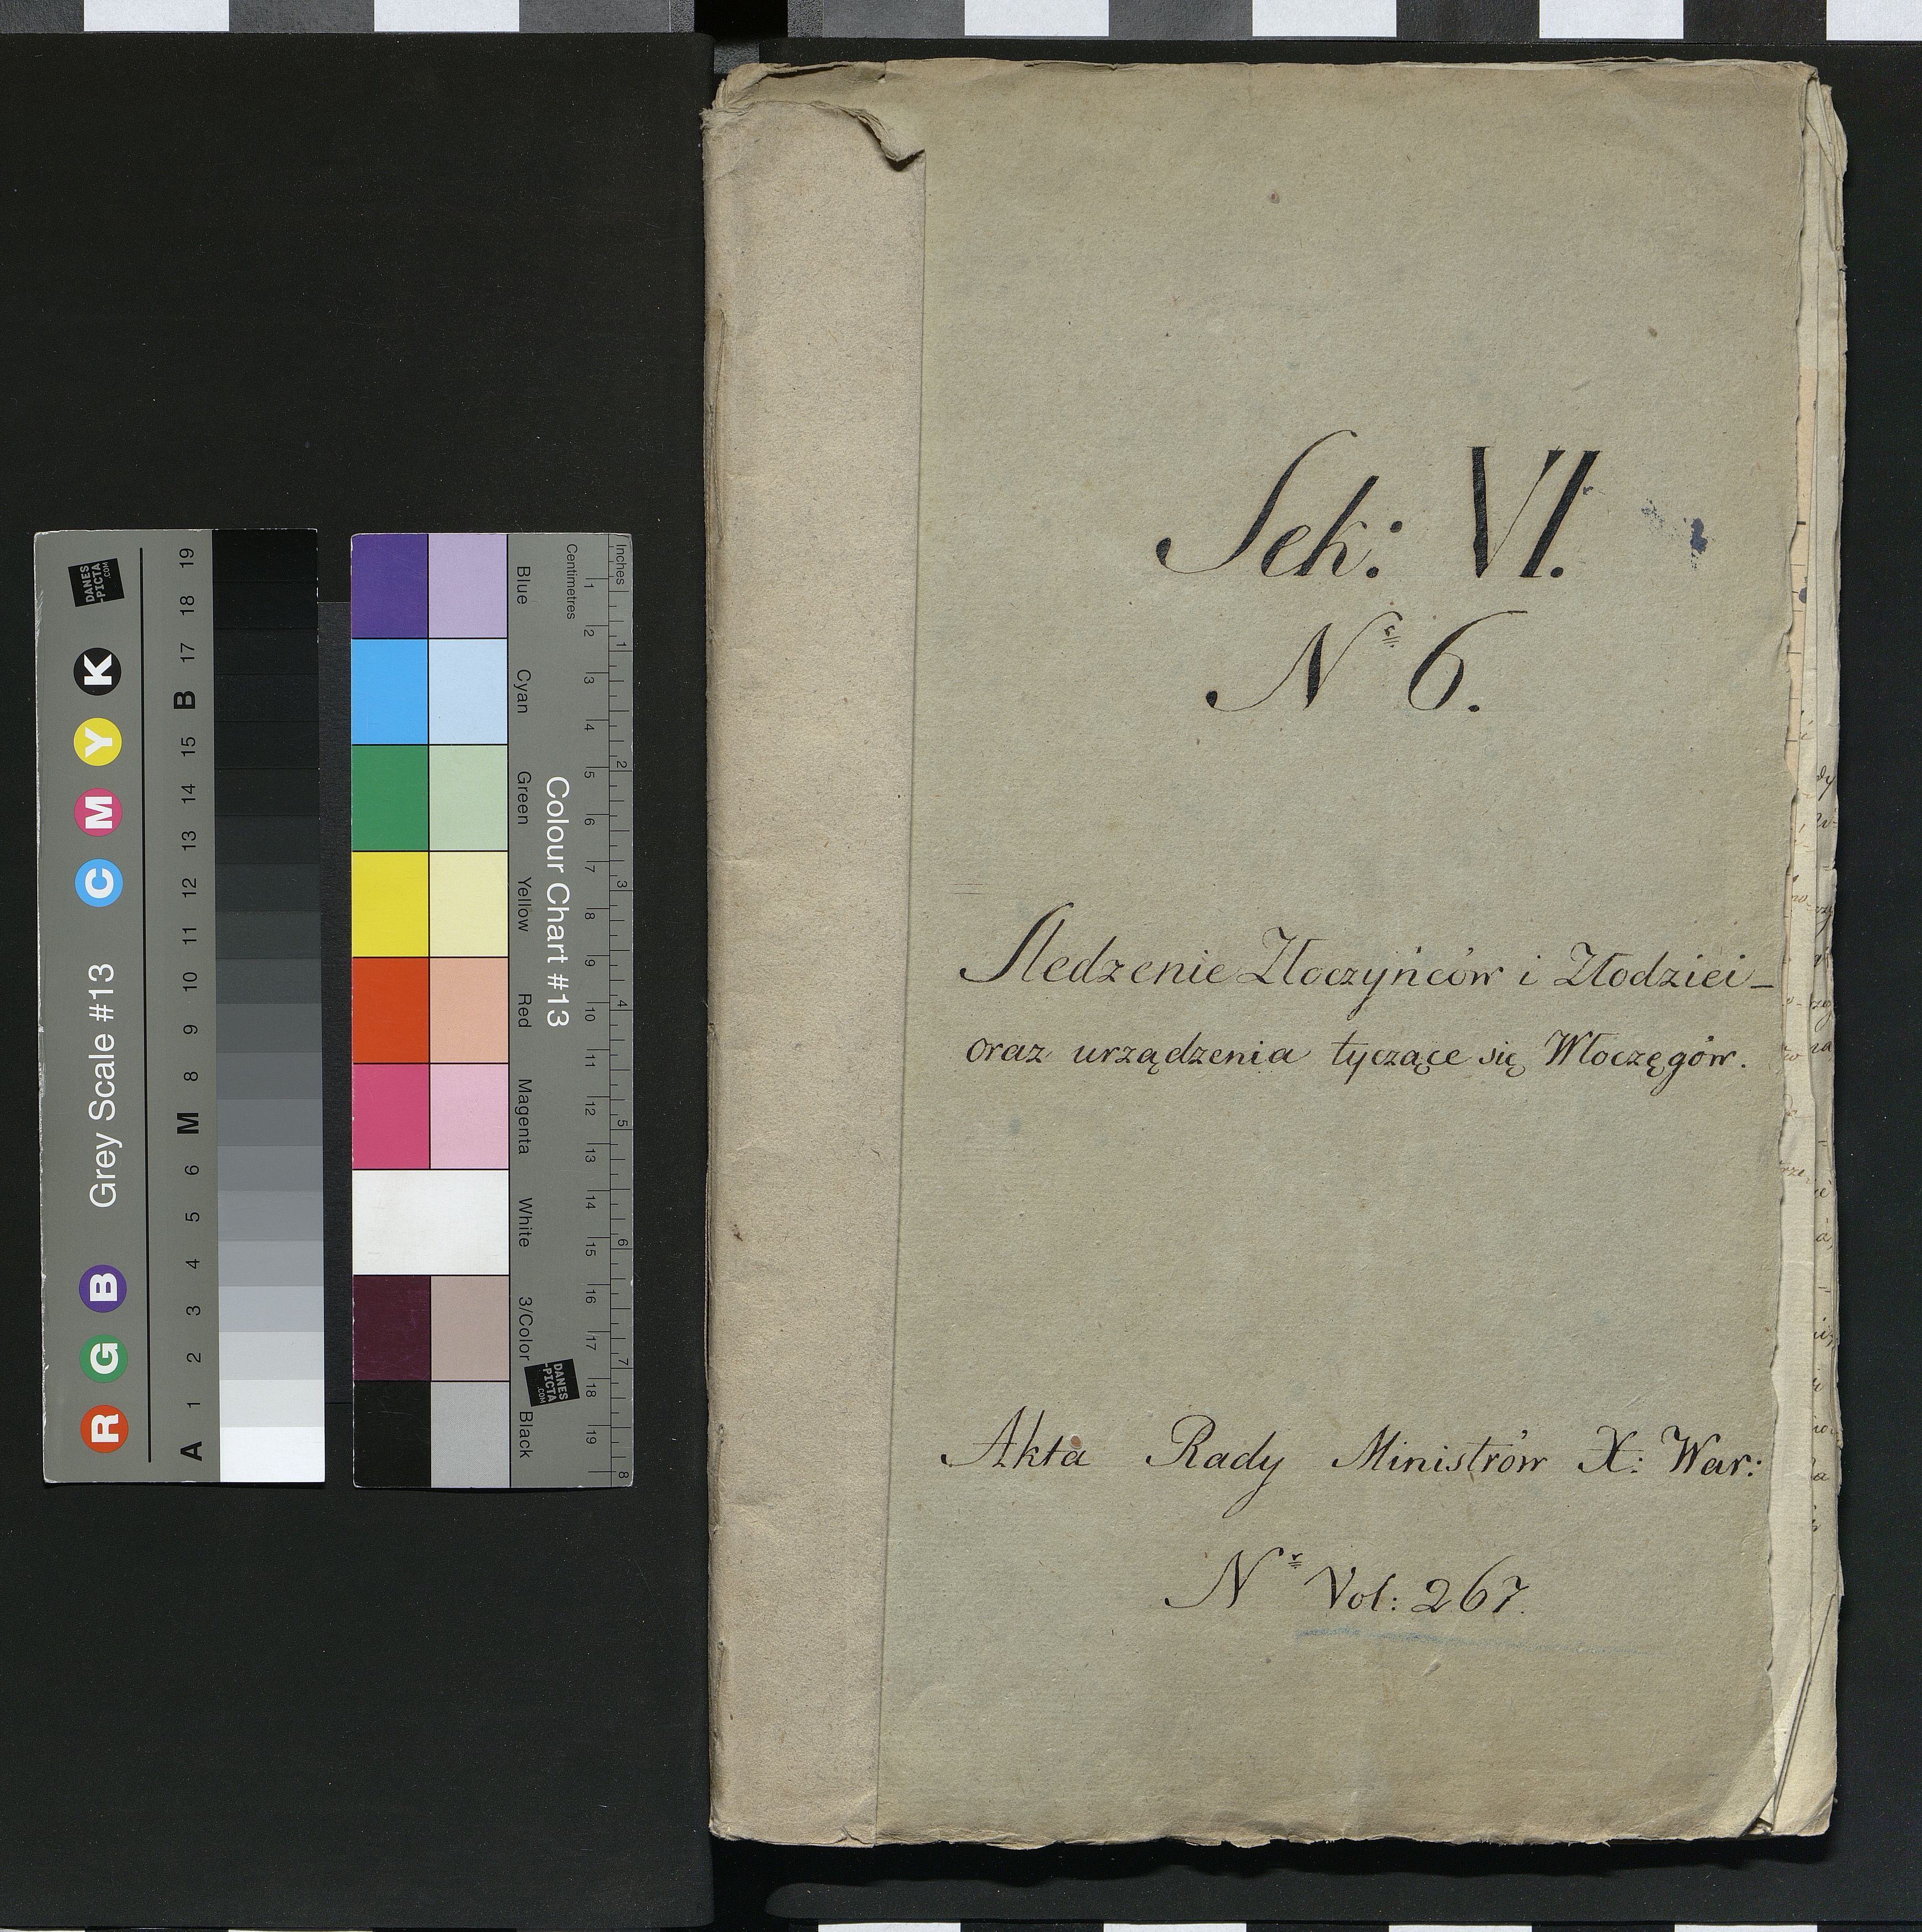 Sek: VI.
Nr 6.
Sledzenie Złoczyńców i Złodziei_
oraz urządzenia tyczące się Włoczęgów.
Akta Rady Ministrów X: War:
Nr Vol: 267.
Grey Scale #13
R G B C M Y K
A 1 2 3 4 5 6 M 8 9 10 11 12 13 14 15 B 17 18 19
DANES
-PICTA
.COM
Colour Chart #13
Blue Cyan Green Yellow Red Magenta White 3/Color Black
Centimetres
1 2 3 4 5 6 7 8 9 10 11 12 13 14 15 16 17 18 19
Inches
1 2 3 4 5 6 7 8
DANES
-PICTA
.COM